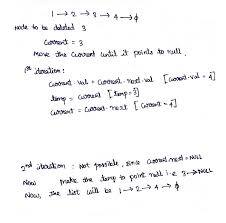 1 → 2 → 3 → 4 → ϕ
Node to be deleted 3
Current = 3
Move the current until it points to null.
1st iteration:
Current.val = Current.next.val [current.val = 4]
temp = current [temp = 3]
current = current.next [current = 4]
2nd iteration : Not possible, since current.next = NULL
Now make the temp to point null i.e 3 → NULL
Now, the list will be 1 → 2 → 4 → ϕ